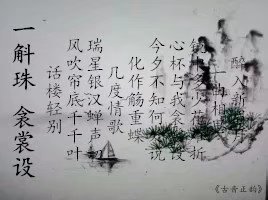 一斛珠 衾裳设
话楼轻别
风吹帘底千千叶
瑞星银汉蝉声
几度情歌
化作觞重蝶
今夕不知何说
心杯与我衾设
花折
一曲相
醉入新
《古音正韵》